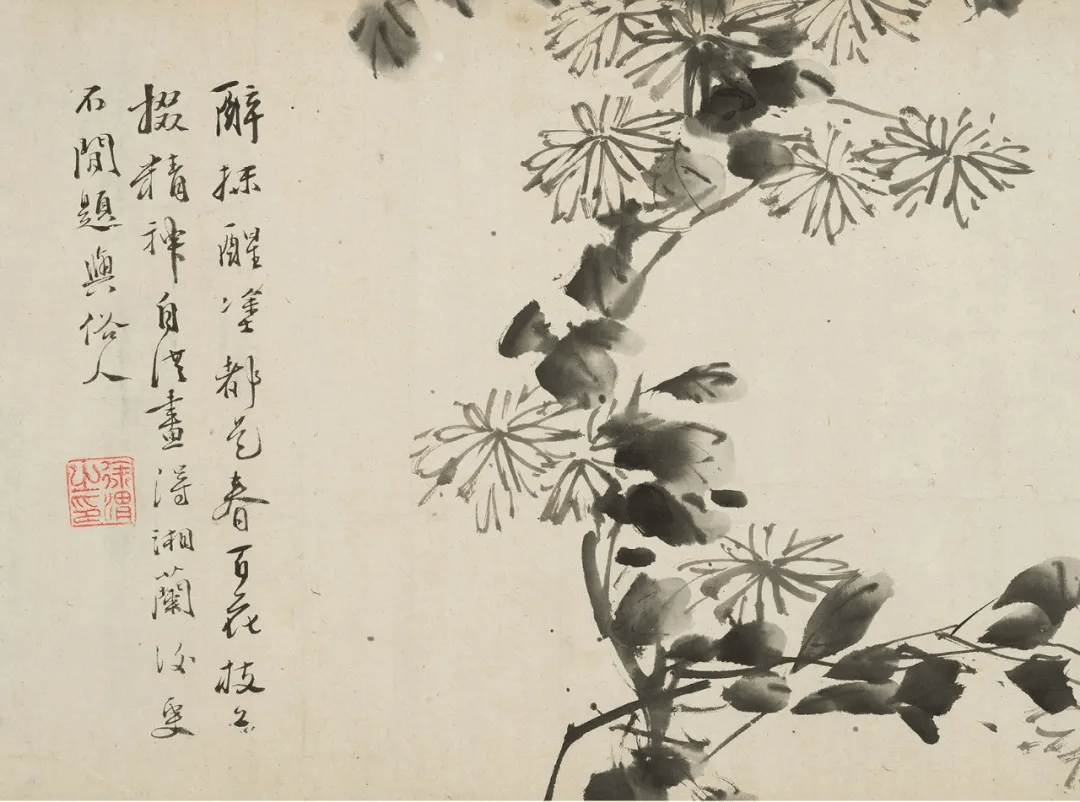 醉抹醒塗都是春百花枝上
掇精神自從畫得湘蘭後更
不閒題與俗人
徐渭
之印